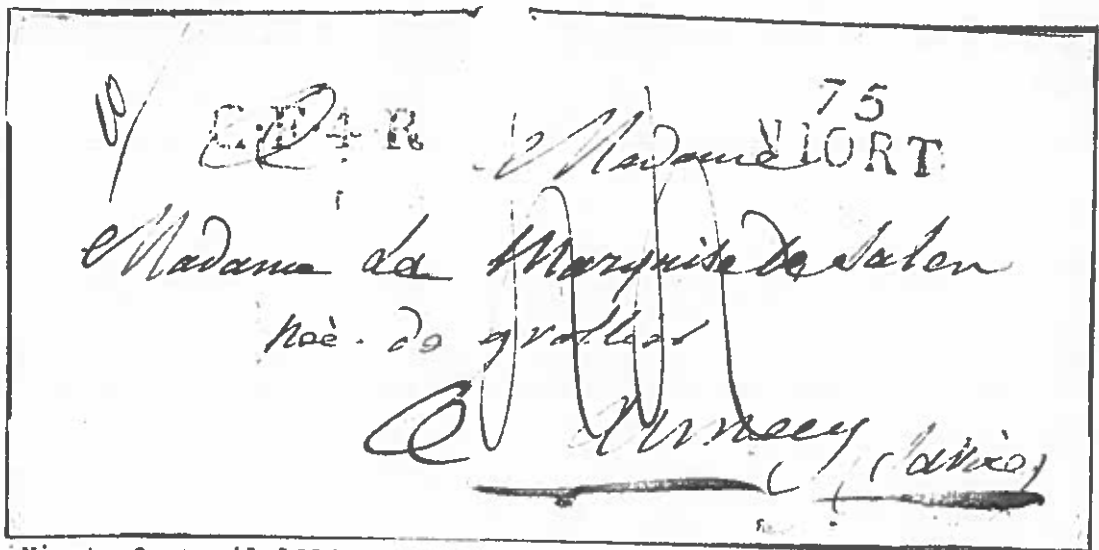 75
C.F.4.R NIORT
Madame
Madame La Marquise de Salen
née de grollier
a Annecy (Savoie)